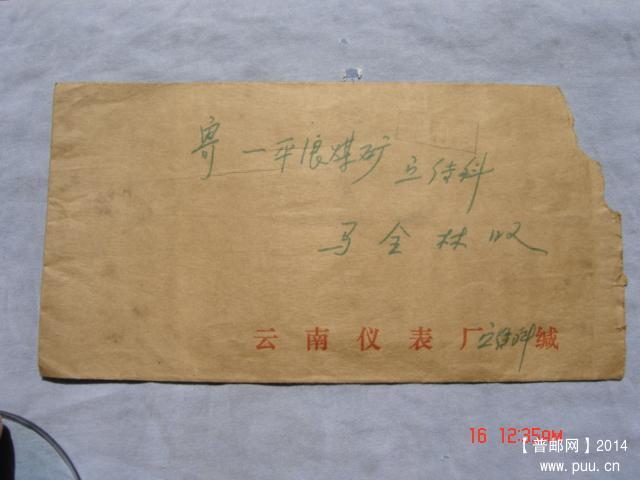 寄 一平浪煤矿 立待科
马全林收
云南仪表厂立待科缄
16 12:35AM
【普邮网】2014
www.puu.cn